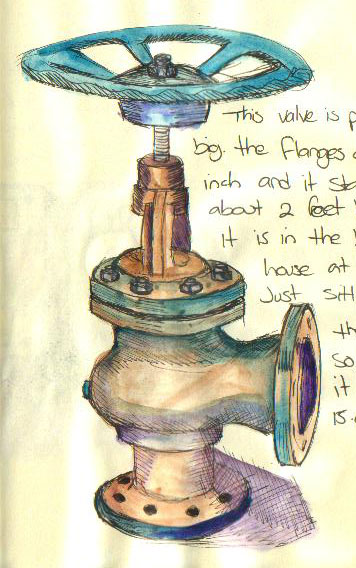 This valve is
big. the flanges
inch and it
about 2 feet
It is in the
house at
Just
th
so
it
is